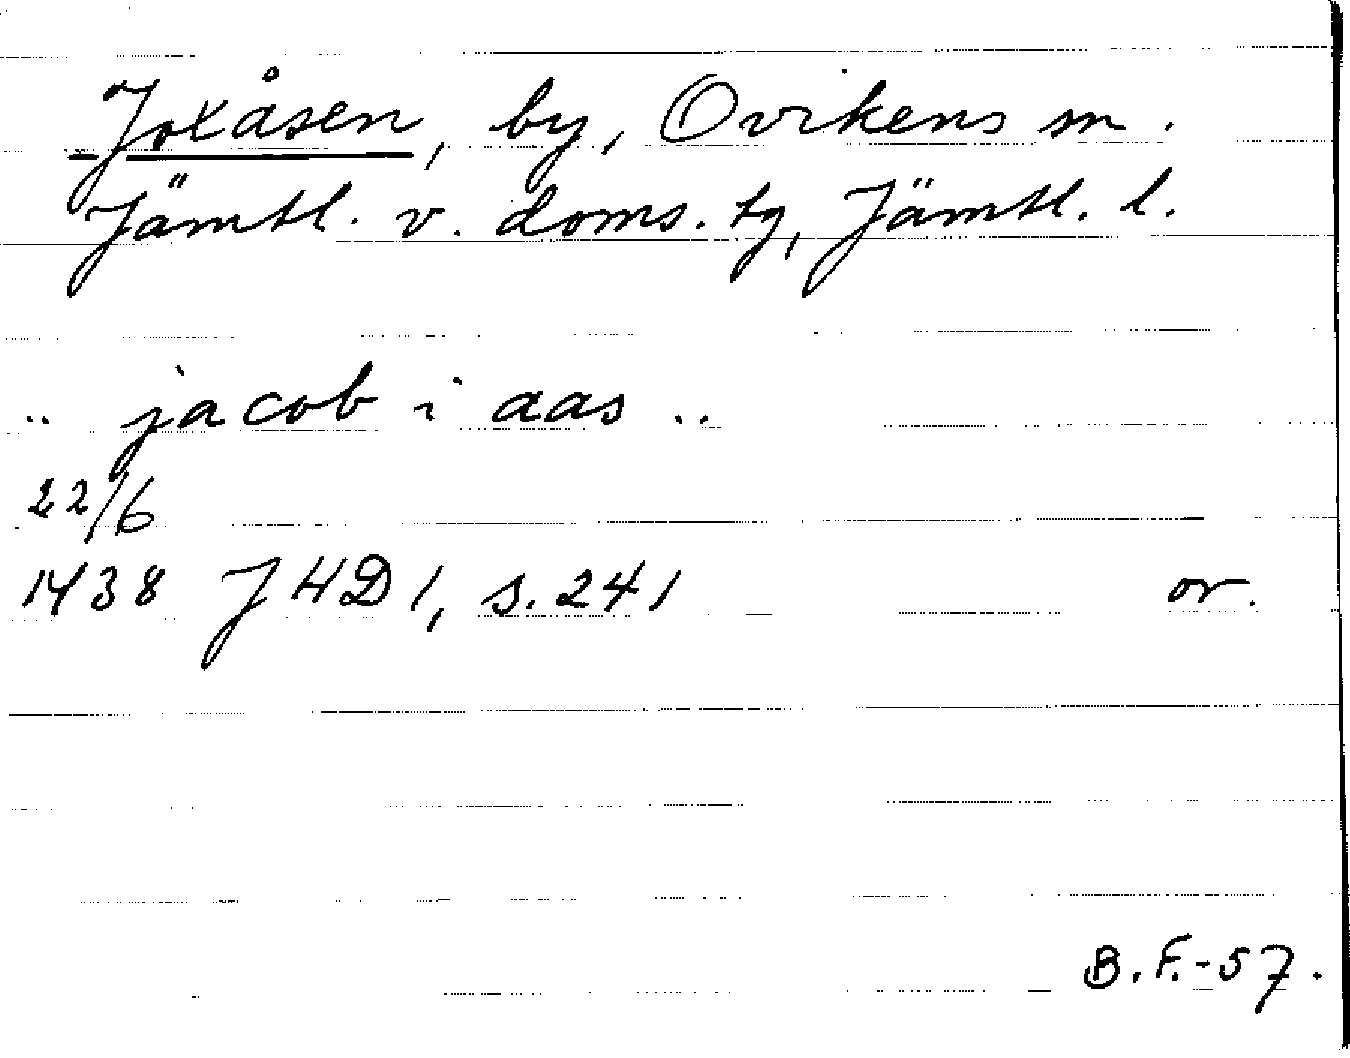 Joxåsen, by, Ovikens sn.
Jämtl. v. doms. tg, Jämtl. l.
.. jacob i aas ..
22/6
1438 JHD 1, s. 241 or.
B.F.-57.